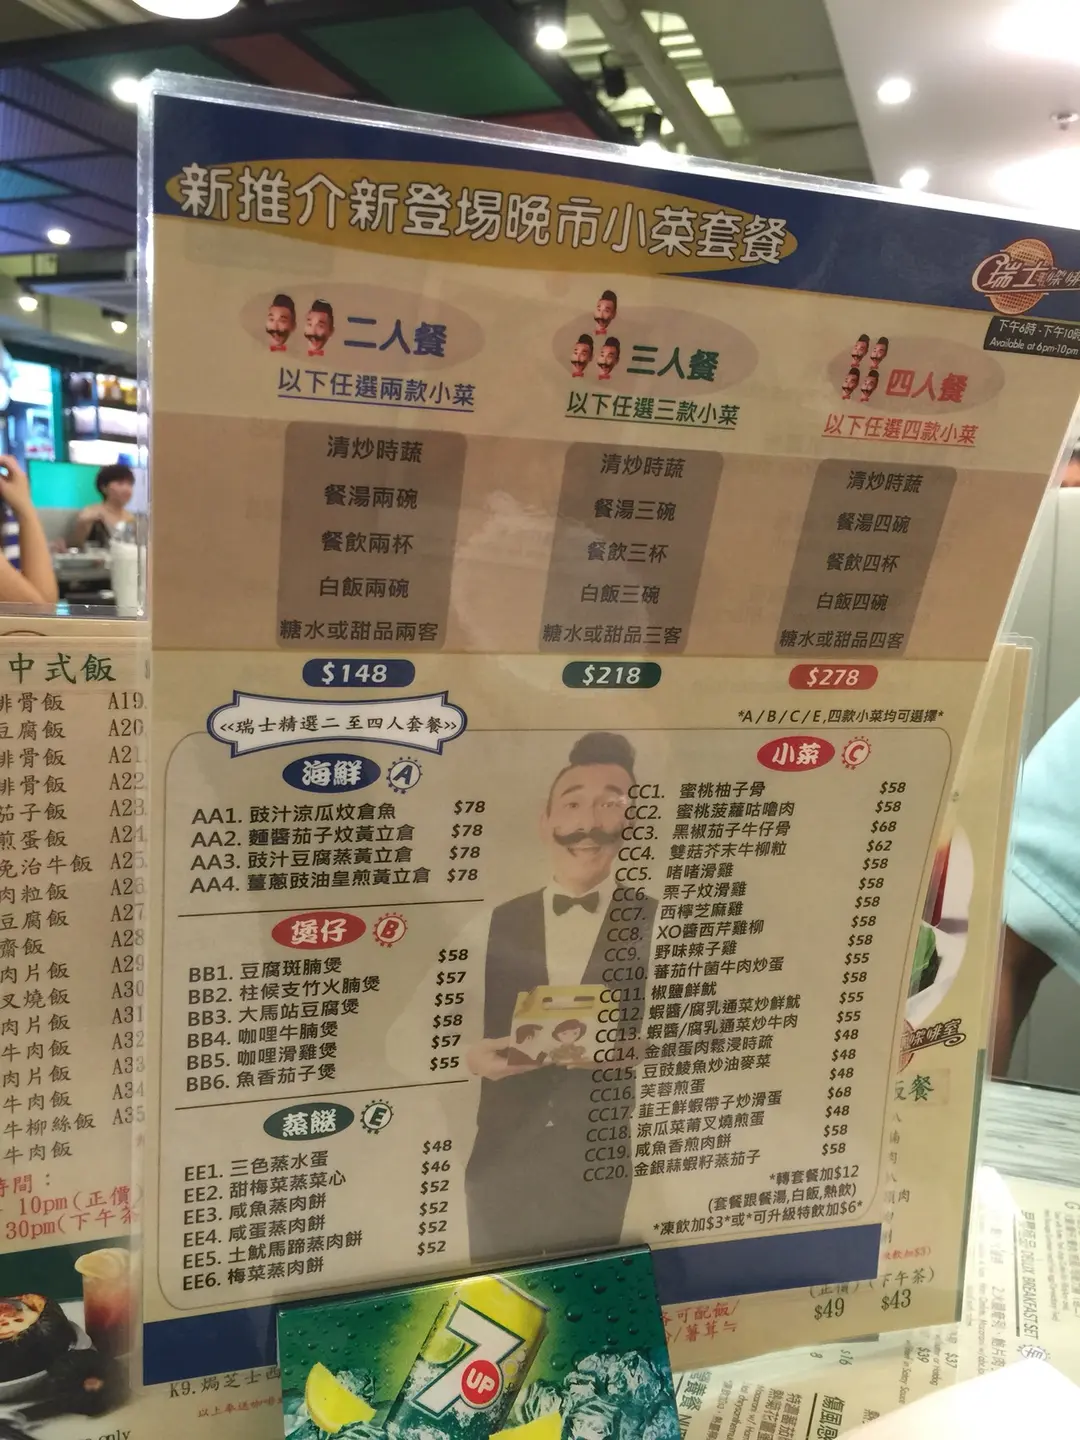 新推介新登場晚市小菜套餐
瑞士
下午6時-下午10時
Available at 6pm-10pm
二人餐
以下任選兩款小菜
清炒時蔬
餐湯兩碗
餐飲兩杯
白飯兩碗
糖水或甜品兩客
$148
三人餐
以下任選三款小菜
清炒時蔬
餐湯三碗
餐飲三杯
白飯三碗
糖水或甜品三客
$218
四人餐
以下任選四款小菜
清炒時蔬
餐湯四碗
餐飲四杯
白飯四碗
糖水或甜品四客
$278
*A/B/C/E,四款小菜均可選擇*
<<瑞士精選二至四人套餐>>
海鮮 A
AA1. 豉汁涼瓜炆倉魚 $78
AA2. 麵醬茄子炆黃立倉 $78
AA3. 豉汁豆腐蒸黃立倉 $78
AA4. 薑蔥豉油皇煎黃立倉 $78
煲仔 B
BB1. 豆腐斑腩煲 $58
BB2. 柱候支竹火腩煲 $57
BB3. 大馬站豆腐煲 $55
BB4. 咖哩牛腩煲 $58
BB5. 咖哩滑雞煲 $57
BB6. 魚香茄子煲 $55
蒸餸 E
EE1. 三色蒸水蛋 $48
EE2. 甜梅菜蒸菜心 $46
EE3. 咸魚蒸肉餅 $52
EE4. 咸蛋蒸肉餅 $52
EE5. 土魷馬蹄蒸肉餅 $52
EE6. 梅菜蒸肉餅 $52
小菜 C
CC1. 蜜桃柚子骨 $58
CC2. 蜜桃菠蘿咕嚕肉 $58
CC3. 黑椒茄子牛仔骨 $68
CC4. 雙菇芥末牛柳粒 $62
CC5. 啫啫滑雞 $58
CC6. 栗子炆滑雞 $58
CC7. 西檸芝麻雞 $58
CC8. XO醬西芹雞柳 $58
CC9. 野味辣子雞 $58
CC10. 蕃茄什菌牛肉炒蛋 $55
CC11. 椒鹽鮮魷 $58
CC12. 蝦醬/腐乳通菜炒鮮魷 $55
CC13. 蝦醬/腐乳通菜炒牛肉 $55
CC14. 金銀蛋肉鬆浸時蔬 $48
CC15. 豆豉鯪魚炒油麥菜 $48
CC16. 芙蓉煎蛋 $48
CC17. 韮王鮮蝦帶子炒滑蛋 $68
CC18. 涼瓜菜莆叉燒煎蛋 $48
CC19. 咸魚香煎肉餅 $58
CC20. 金銀蒜蝦籽蒸茄子 $58
*轉套餐加$12
(套餐跟餐湯,白飯,熱飲)
*凍飲加$3*或*可升級特飲加$6*
中式飯
排骨飯 A19
豆腐飯 A20
排骨飯 A21
排骨飯 A22
茄子飯 A23
煎蛋飯 A24
免治牛飯 A25
肉粒飯 A26
豆腐飯 A27
齋飯 A28
肉片飯 A29
叉燒飯 A30
肉片飯 A31
牛肉飯 A32
肉片飯 A33
牛肉飯 A34
牛柳絲飯 A35
牛肉飯
時間：
10pm(正價)
30pm(下午茶
K9. 焗芝士西
only
7UP
可配飯/
/薯茸
(正價) (下午茶)
$49 $43
飯餐
DELUX BREAKFAST SET
$37
$39